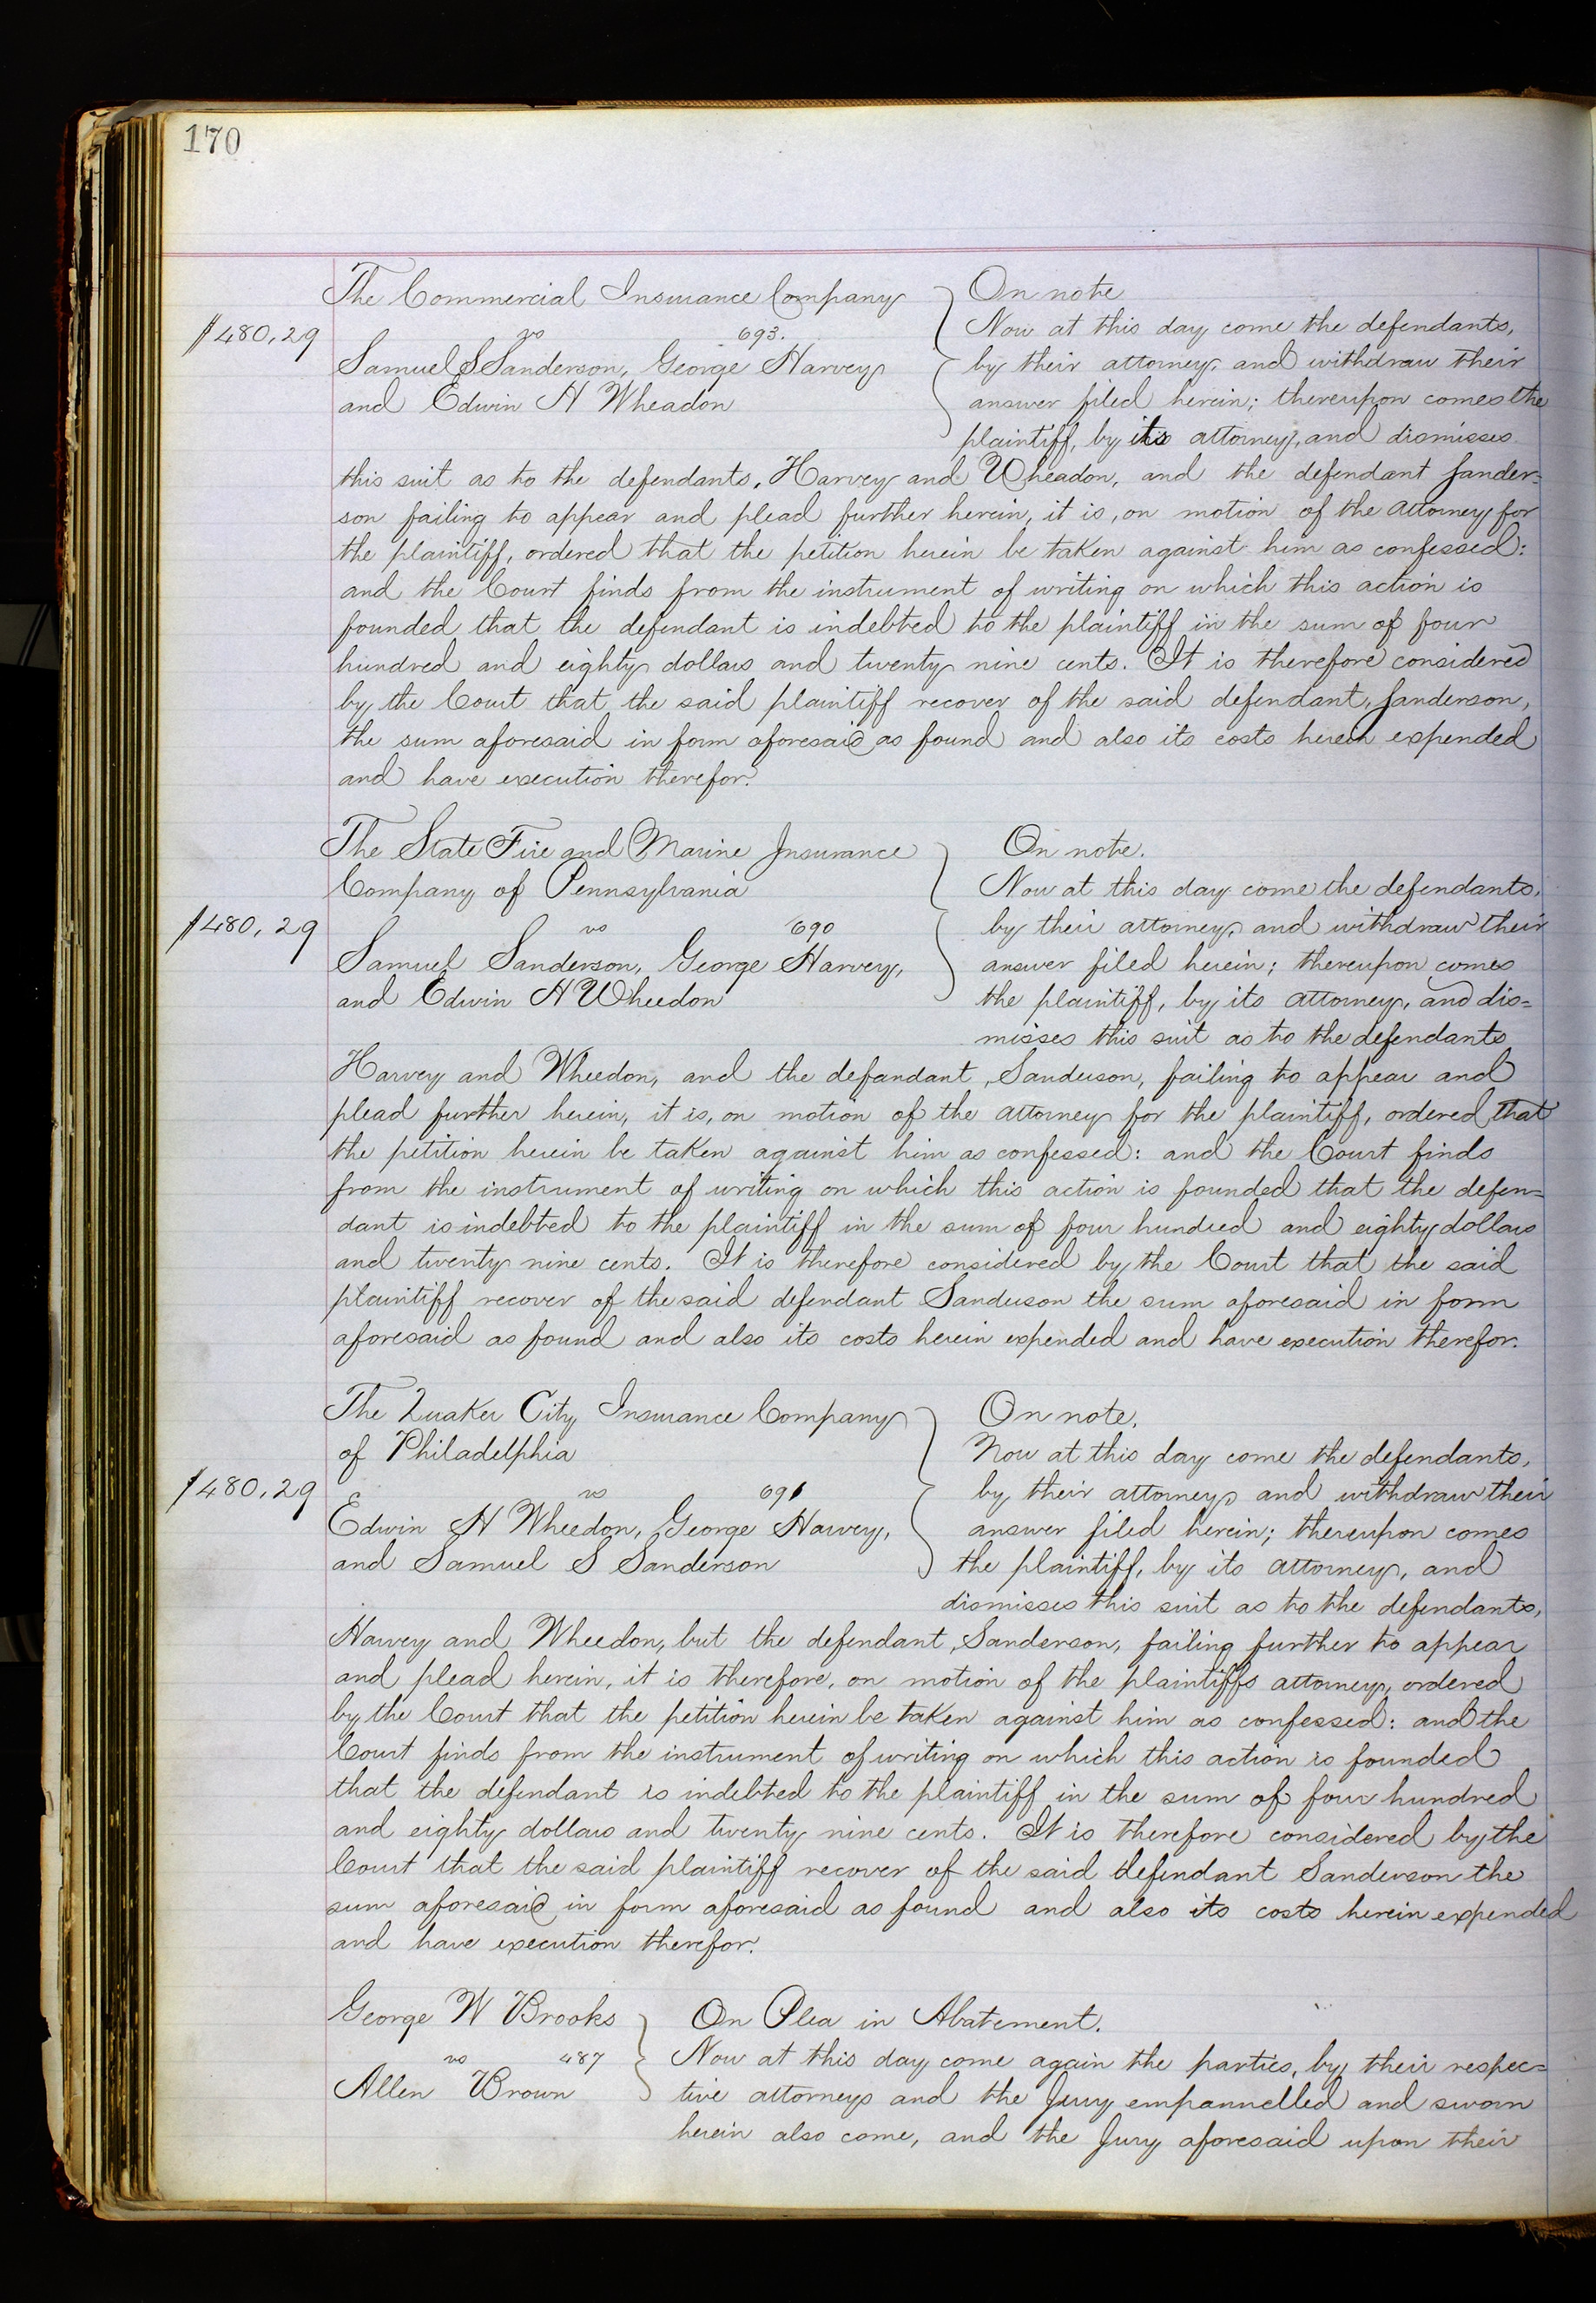 170
The Commercial Insurance Company On note
$480,29 vs 693. Now at this day come the defendants,
Samuel S Sanderson, George Harvey by their attorney, and withdraw their
and Edwin H Wheadon answer filed herein; thereupon comes the
plaintiff, by its attorney, and dismisses
this suit as to the defendants, Harvey and Wheadon, and the defendant Sander=
son failing to appear and plead further herein, it is, on motion of the attorney for
the plaintiff, ordered that the petition herein be taken against him as confessed:
and the Court finds from the instrument of writing on which this action is
founded that the defendant is indebted to the plaintiff in the sum of four
hundred and eighty dollars and twenty nine cents. It is therefore considered
by the Court that the said plaintiff recover of the said defendant, Sanderson,
the sum aforesaid in form aforesaid as found and also its costs herein expended
and have execution therefor.
The State Fire and Marine Insurance On note.
Company of Pennsylvania Now at this day come the defendants,
$480,29 vs 690 by their attorney, and withdraw their
Samuel Sanderson, George Harvey, answer filed herein; thereupon comes
and Edwin H Wheedon the plaintiff, by its attorney, and dis=
misses this suit as to the defendants
Harvey and Wheedon, and the defandant, Sanderson, failing to appear and
plead further herein, it is, on motion of the attorney for the plaintiff, ordered that
the petition herein be taken against him as confessed: and the Court finds
from the instrument of writing on which this action is founded that the defen=
dant is indebted to the plaintiff in the sum of four hundred and eighty dollars
and twenty nine cents. It is therefore considered by the Court that the said
plaintiff recover of the said defendant Sanderson the sum aforesaid in form
aforesaid as found and also its costs herein expended and have execution therefor.
The Quaker City Insurance Company On note.
of Philadelphia Now at this day come the defendants,
$480,29 vs 691 by their attorney, and withdraw their
Edwin H Wheedon, George Harvey, answer filed herein; thereupon comes
and Samuel S Sanderson the plaintiff, by its attorney, and
dismisses this suit as to the defendants,
Harvey and Wheedon, but the defendant, Sanderson, failing further to appear
and plead herein, it is therefore, on motion of the plaintiffs attorney, ordered
by the Court that the petition herein be taken against him as confessed: and the
Court finds from the instrument of writing on which this action is founded
that the defendant is indebted to the plaintiff in the sum of four hundred
and eighty dollars and twenty nine cents. It is therefore considered by the
Court that the said plaintiff recover of the said defendant Sanderson the
sum aforesaid in form aforesaid as found and also its costs herein expended
and have execution therefor.
George W Brooks On Plea in Abatement.
vs 487 Now at this day come again the parties, by their respec=
Allen Brown tive attorneys and the Jury empannelled and sworn
herein also come, and the Jury aforesaid upon their